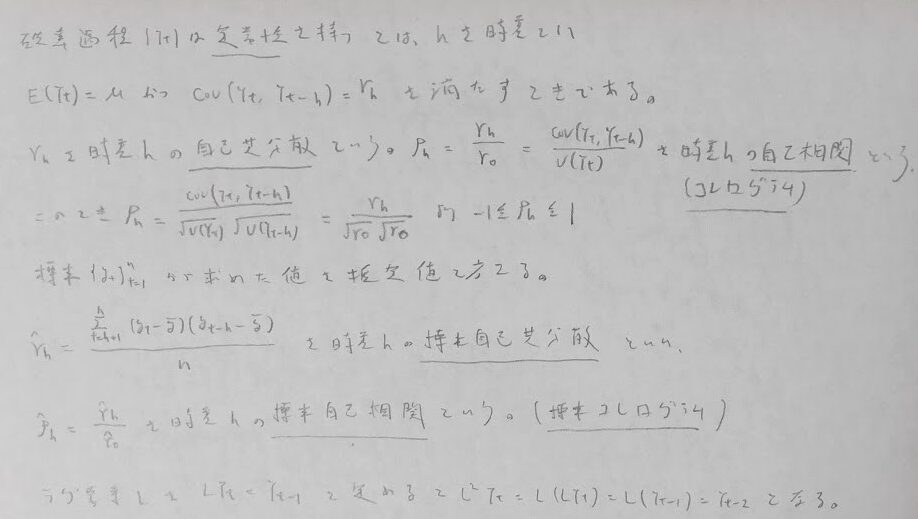 確率過程{Yt}は定常性を持つとは、hを時差とい
E(Yt)=μ かつ cov(Yt, Yt-h)=γh を満たすときである。
γhを時差hの自己共分散という。ρh = γh/γ0 = cov(Yt, Yt-h)/V(Yt) を時差hの自己相関という.
(コレログラム)
このとき ρh = cov(Yt, Yt-h)/√V(Yt) √V(Yt-h) = γh/√γ0 √γ0 より -1≤ρh≤1
標本{yt}ⁿt=1 から求めた値を推定値と考える。
γ̂h = Σⁿt=h+1 (yt-ȳ)(yt-h-ȳ)/n を時差hの標本自己共分散といい、
ρ̂h = γ̂h/γ̂0 を時差hの標本自己相関という。(標本コレログラム)
ラグ演算LをLYt=Yt-1と定めるとL²Yt=L(LYt)=L(Yt-1)=Yt-2となる。